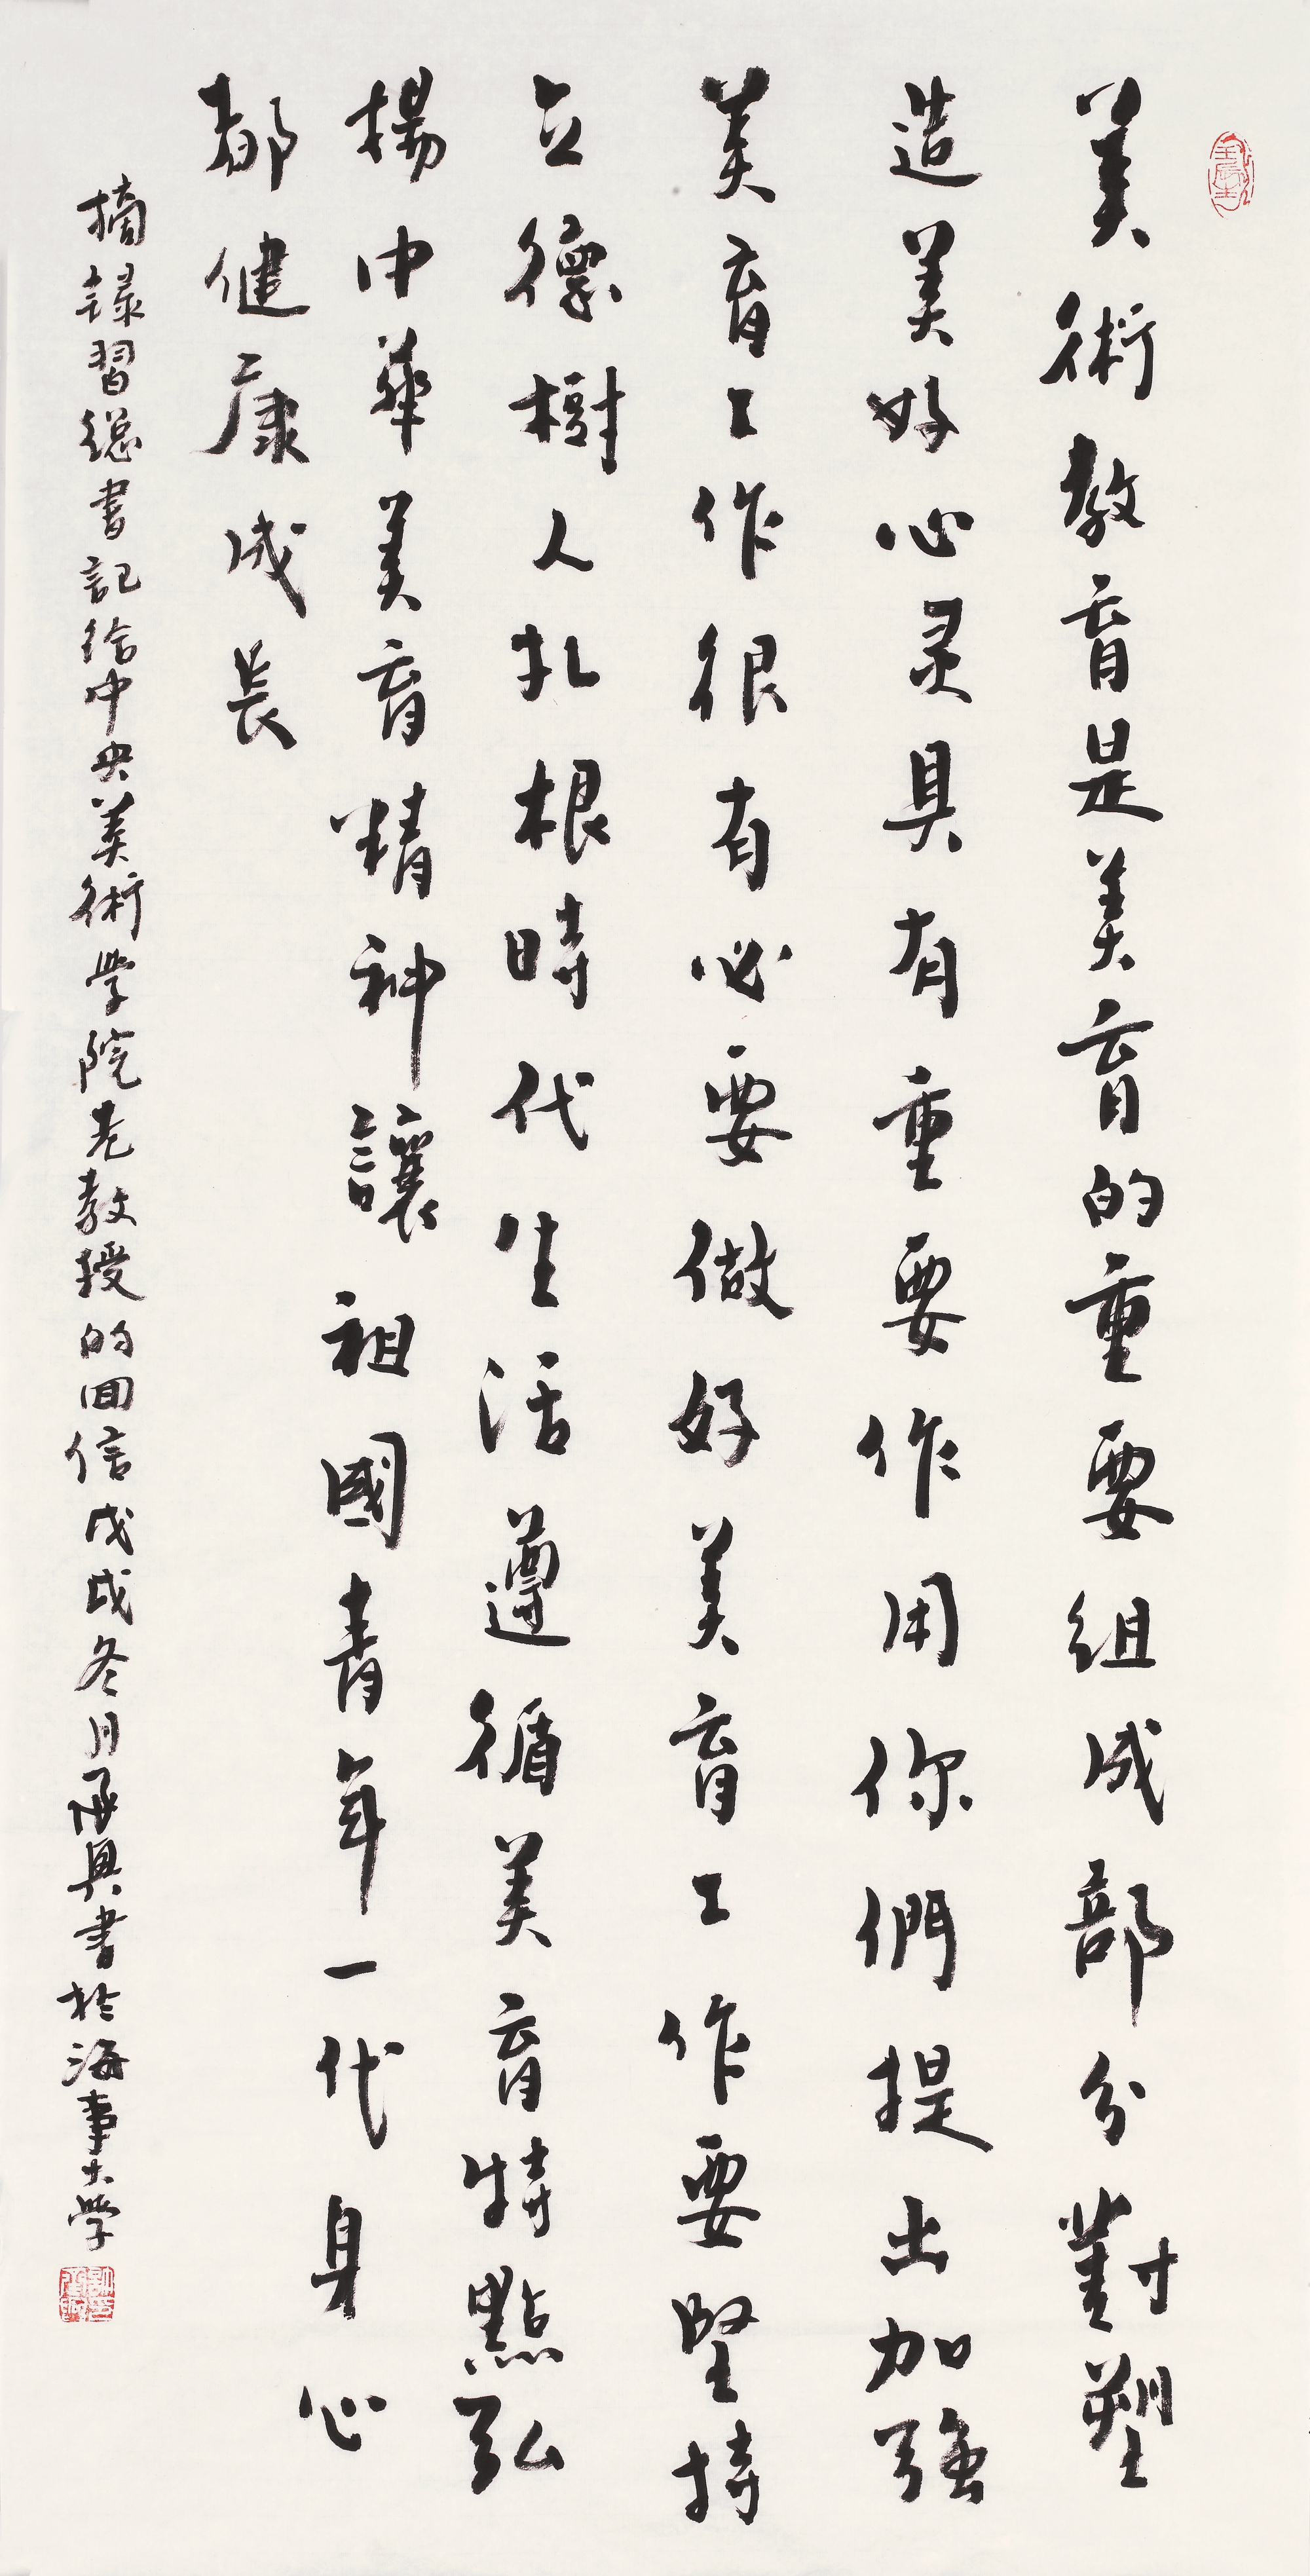 美術教育是美育的重要組成部分對塑
造美好心灵具有重要作用你們提出加強
美育工作很有必要做好美育工作要堅持
立德樹人扎根時代生活遵循美育特點弘
揚中華美育精神讓祖國青年一代身心
都健康成長
摘録習總書記給中央美術学院老教授的回信戊戌冬月再興書於海事大学